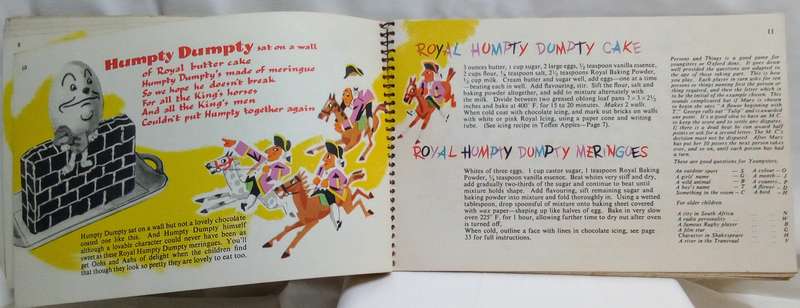 8
Humpty Dumpty sat on a wall
of Royal butter cake
Humpty Dumpty's made of meringue
So we hope he doesn't break
For all the King's horses
And all the King's men
Couldn't put Humpty together again
Humpty Dumpty sat on a wall but not a lovely chocolate
coated one like this. And Humpty Dumpty himself
although a lovable character could never have been as
sweet as these Royal Humpty Dumpty meringues. You'll
get Oohs and Aahs of delight when the children find
that though they look so pretty they are lovely to eat too.
11
ROYAL HUMPTY DUMPTY CAKE
3 ounces butter, 1 cup sugar, 2 large eggs, ½ teaspoon vanilla essence,
2 cups flour, ¼ teaspoon salt, 2½ teaspoons Royal Baking Powder,
½ cup milk. Cream butter and sugar well, add eggs—one at a time
—beating each in well. Add flavouring, stir. Sift the flour, salt and
baking powder altogether, and add to mixture alternately with
the milk. Divide between two greased oblong loaf pans 7 × 3 × 2½
inches and bake at 400° F. for 15 to 20 minutes. Makes 2 walls
When cold coat with chocolate icing, and mark out bricks on walls
with white or pink Royal Icing, using a paper cone and writing
tube. (See icing recipe in Toffee Apples—Page 7).
ROYAL HUMPTY DUMPTY MERINGUES
Whites of three eggs. 1 cup castor sugar, 1 teaspoon Royal Baking
Powder, ½ teaspoon vanilla essence. Beat whites very stiff and dry,
add gradually two-thirds of the sugar and continue to beat until
mixture holds shape. Add flavouring, sift remaining sugar and
baking powder into mixture and fold thoroughly in. Using a wetted
tablespoon, drop spoonsful of mixture onto baking sheet covered
with wax paper—shaping up like halves of egg. Bake in very slow
oven 225° F. for 1 hour, allowing further time to dry out after oven
is turned off.
When cold, outline a face with lines in chocolate icing, see page
33 for full instructions.
Persons and Things is a good game for
youngsters or Oldest ones. It goes down
well provided the questions are adapted to
the age of those taking part. This is how
you play. Each player in turn asks for six
persons or things naming first the person or
thing required, and then the letter which is
to be the initial of the example chosen. This
sounds complicated but if "Mary is chosen
to begin she says " A flower beginning with
T". George calls out "Tulip" and is awarded
one point. It's a good idea to have an M.C.
to keep the score and to settle any disputes.
If there is a dead heat he can award half
points or ask for a second letter. The M.C.'s
decision must not be disputed. After Mary
has put her 10 posers the next person takes
over, and so on, until each person has had
a turn.
These are good questions for Youngsters.
An outdoor sport
A girl's name
A wild animal
A boy's name
Something in the room
A colour
A month
A country
A flower
A bird
For older children.
A city in South Africa
A radio personality
A famous Rugby player
A film star
Character in Shakespeare
A river in the Transvaal